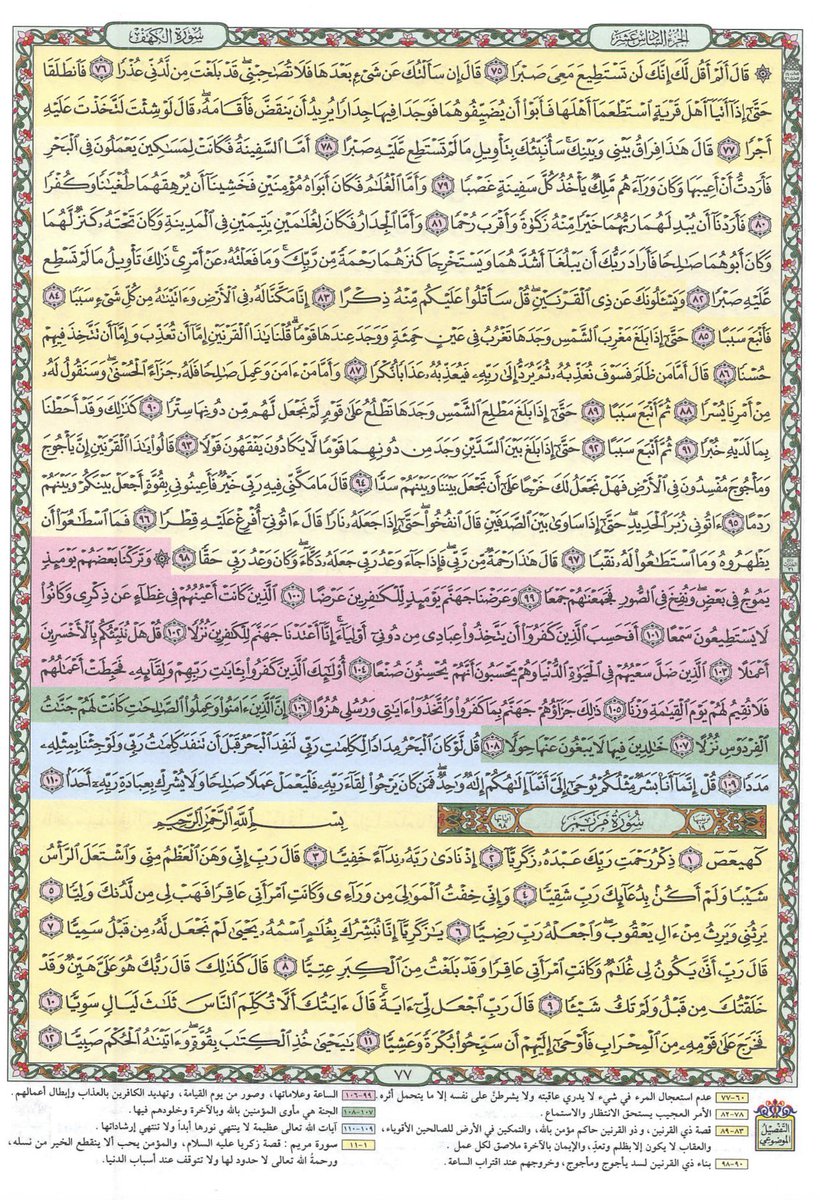 سُورَةُ الكَهْفِ
الجزء السادس عشر
۞ قَالَ أَلَمْ أَقُل لَّكَ إِنَّكَ لَن تَسْتَطِيعَ مَعِيَ صَبْرًا ٧٥ قَالَ إِن سَأَلْتُكَ عَن شَيْءٍ بَعْدَهَا فَلَا تُصَاحِبْنِي قَدْ بَلَغْتَ مِن لَّدُنِّي عُذْرًا ٧٦ فَانطَلَقَا
حَتَّى إِذَا أَتَيَا أَهْلَ قَرْيَةٍ اسْتَطْعَمَا أَهْلَهَا فَأَبَوْا أَن يُضَيِّفُوهُمَا فَوَجَدَا فِيهَا جِدَارًا يُرِيدُ أَن يَنقَضَّ فَأَقَامَهُ قَالَ لَوْ شِئْتَ لَتَّخَذْتَ عَلَيْهِ
أَجْرًا ٧٧ قَالَ هَذَا فِرَاقُ بَيْنِي وَبَيْنِكَ سَأُنَبِّئُكَ بِتَأْوِيلِ مَا لَمْ تَسْتَطِع عَّلَيْهِ صَبْرًا ٧٨ أَمَّا السَّفِينَةُ فَكَانَتْ لِمَسَاكِينَ يَعْمَلُونَ فِي الْبَحْرِ
فَأَرَدتُّ أَنْ أَعِيبَهَا وَكَانَ وَرَاءَهُم مَّلِكٌ يَأْخُذُ كُلَّ سَفِينَةٍ غَصْبًا ٧٩ وَأَمَّا الْغُلَامُ فَكَانَ أَبَوَاهُ مُؤْمِنَيْنِ فَخَشِينَا أَن يُرْهِقَهُمَا طُغْيَانًا وَكُفْرًا
٨٠ فَأَرَدْنَا أَن يُبْدِلَهُمَا رَبُّهُمَا خَيْرًا مِّنْهُ زَكَاةً وَأَقْرَبَ رُحْمًا ٨١ وَأَمَّا الْجِدَارُ فَكَانَ لِغُلَامَيْنِ يَتِيمَيْنِ فِي الْمَدِينَةِ وَكَانَ تَحْتَهُ كَنزٌ لَّهُمَا
وَكَانَ أَبُوهُمَا صَالِحًا فَأَرَادَ رَبُّكَ أَن يَبْلُغَا أَشُدَّهُمَا وَيَسْتَخْرِجَا كَنزَهُمَا رَحْمَةً مِّن رَّبِّكَ وَمَا فَعَلْتُهُ عَنْ أَمْرِي ذَلِكَ تَأْوِيلُ مَا لَمْ تَسْطِع
عَّلَيْهِ صَبْرًا ٨٢ وَيَسْأَلُونَكَ عَن ذِي الْقَرْنَيْنِ قُلْ سَأَتْلُوا عَلَيْكُم مِّنْهُ ذِكْرًا ٨٣ إِنَّا مَكَّنَّا لَهُ فِي الْأَرْضِ وَآتَيْنَاهُ مِن كُلِّ شَيْءٍ سَبَبًا ٨٤
فَأَتْبَعَ سَبَبًا ٨٥ حَتَّى إِذَا بَلَغَ مَغْرِبَ الشَّمْسِ وَجَدَهَا تَغْرُبُ فِي عَيْنٍ حَمِئَةٍ وَوَجَدَ عِندَهَا قَوْمًا قُلْنَا يَا ذَا الْقَرْنَيْنِ إِمَّا أَن تُعَذِّبَ وَإِمَّا أَن تَتَّخِذَ فِيهِمْ
حُسْنًا ٨٦ قَالَ أَمَّا مَن ظَلَمَ فَسَوْفَ نُعَذِّبُهُ ثُمَّ يُرَدُّ إِلَى رَبِّهِ فَيُعَذِّبُهُ عَذَابًا نُّكْرًا ٨٧ وَأَمَّا مَنْ آمَنَ وَعَمِلَ صَالِحًا فَلَهُ جَزَاءً الْحُسْنَى وَسَنَقُولُ لَهُ
مِنْ أَمْرِنَا يُسْرًا ٨٨ ثُمَّ أَتْبَعَ سَبَبًا ٨٩ حَتَّى إِذَا بَلَغَ مَطْلِعَ الشَّمْسِ وَجَدَهَا تَطْلُعُ عَلَى قَوْمٍ لَّمْ نَجْعَل لَّهُم مِّن دُونِهَا سِتْرًا ٩٠ كَذَلِكَ وَقَدْ أَحَطْنَا
بِمَا لَدَيْهِ خُبْرًا ٩١ ثُمَّ أَتْبَعَ سَبَبًا ٩٢ حَتَّى إِذَا بَلَغَ بَيْنَ السَّدَّيْنِ وَجَدَ مِن دُونِهِمَا قَوْمًا لَّا يَكَادُونَ يَفْقَهُونَ قَوْلًا ٩٣ قَالُوا يَا ذَا الْقَرْنَيْنِ إِنَّ يَأْجُوجَ
وَمَأْجُوجَ مُفْسِدُونَ فِي الْأَرْضِ فَهَلْ نَجْعَلُ لَكَ خَرْجًا عَلَى أَن تَجْعَلَ بَيْنَنَا وَبَيْنَهُمْ سَدًّا ٩٤ قَالَ مَا مَكَّنِّي فِيهِ رَبِّي خَيْرٌ فَأَعِينُونِي بِقُوَّةٍ أَجْعَلْ بَيْنَكُمْ وَبَيْنَهُمْ
رَدْمًا ٩٥ آتُونِي زُبَرَ الْحَدِيدِ حَتَّى إِذَا سَاوَى بَيْنَ الصَّدَفَيْنِ قَالَ انفُخُوا حَتَّى إِذَا جَعَلَهُ نَارًا قَالَ آتُونِي أُفْرِغْ عَلَيْهِ قِطْرًا ٩٦ فَمَا اسْطَاعُوا أَن
يَظْهَرُوهُ وَمَا اسْتَطَاعُوا لَهُ نَقْبًا ٩٧ قَالَ هَذَا رَحْمَةٌ مِّن رَّبِّي فَإِذَا جَاءَ وَعْدُ رَبِّي جَعَلَهُ دَكَّاءَ وَكَانَ وَعْدُ رَبِّي حَقًّا ٩٨ ۞ وَتَرَكْنَا بَعْضَهُمْ يَوْمَئِذٍ
يَمُوجُ فِي بَعْضٍ وَنُفِخَ فِي الصُّورِ فَجَمَعْنَاهُمْ جَمْعًا ٩٩ وَعَرَضْنَا جَهَنَّمَ يَوْمَئِذٍ لِّلْكَافِرِينَ عَرْضًا ١٠٠ الَّذِينَ كَانَتْ أَعْيُنُهُمْ فِي غِطَاءٍ عَن ذِكْرِي وَكَانُوا
لَا يَسْتَطِيعُونَ سَمْعًا ١٠١ أَفَحَسِبَ الَّذِينَ كَفَرُوا أَن يَتَّخِذُوا عِبَادِي مِن دُونِي أَوْلِيَاءَ إِنَّا أَعْتَدْنَا جَهَنَّمَ لِلْكَافِرِينَ نُزُلًا ١٠٢ قُلْ هَلْ نُنَبِّئُكُم بِالْأَخْسَرِينَ
أَعْمَالًا ١٠٣ الَّذِينَ ضَلَّ سَعْيُهُمْ فِي الْحَيَاةِ الدُّنْيَا وَهُمْ يَحْسَبُونَ أَنَّهُمْ يُحْسِنُونَ صُنْعًا ١٠٤ أُولَئِكَ الَّذِينَ كَفَرُوا بِآيَاتِ رَبِّهِمْ وَلِقَائِهِ فَحَبِطَتْ أَعْمَالُهُمْ
فَلَا نُقِيمُ لَهُمْ يَوْمَ الْقِيَامَةِ وَزْنًا ١٠٥ ذَلِكَ جَزَاؤُهُمْ جَهَنَّمُ بِمَا كَفَرُوا وَاتَّخَذُوا آيَاتِي وَرُسُلِي هُزُوًا ١٠٦ إِنَّ الَّذِينَ آمَنُوا وَعَمِلُوا الصَّالِحَاتِ كَانَتْ لَهُمْ جَنَّاتُ
الْفِرْدَوْسِ نُزُلًا ١٠٧ خَالِدِينَ فِيهَا لَا يَبْغُونَ عَنْهَا حِوَلًا ١٠٨ قُل لَّوْ كَانَ الْبَحْرُ مِدَادًا لِّكَلِمَاتِ رَبِّي لَنَفِدَ الْبَحْرُ قَبْلَ أَن تَنفَدَ كَلِمَاتُ رَبِّي وَلَوْ جِئْنَا بِمِثْلِهِ
مَدَدًا ١٠٩ قُلْ إِنَّمَا أَنَا بَشَرٌ مِّثْلُكُمْ يُوحَى إِلَيَّ أَنَّمَا إِلَهُكُمْ إِلَهٌ وَاحِدٌ فَمَن كَانَ يَرْجُوا لِقَاءَ رَبِّهِ فَلْيَعْمَلْ عَمَلًا صَالِحًا وَلَا يُشْرِكْ بِعِبَادَةِ رَبِّهِ أَحَدًا ١١٠
ترتيبها ١٩ سُورَةُ مَرْيَمَ آياتها ٩٨
بِسْمِ اللَّهِ الرَّحْمَنِ الرَّحِيمِ
كهيعص ١ ذِكْرُ رَحْمَتِ رَبِّكَ عَبْدَهُ زَكَرِيَّا ٢ إِذْ نَادَى رَبَّهُ نِدَاءً خَفِيًّا ٣ قَالَ رَبِّ إِنِّي وَهَنَ الْعَظْمُ مِنِّي وَاشْتَعَلَ الرَّأْسُ
شَيْبًا وَلَمْ أَكُن بِدُعَائِكَ رَبِّ شَقِيًّا ٤ وَإِنِّي خِفْتُ الْمَوَالِيَ مِن وَرَاءِي وَكَانَتِ امْرَأَتِي عَاقِرًا فَهَبْ لِي مِن لَّدُنكَ وَلِيًّا ٥
يَرِثُنِي وَيَرِثُ مِنْ آلِ يَعْقُوبَ وَاجْعَلْهُ رَبِّ رَضِيًّا ٦ يَا زَكَرِيَّا إِنَّا نُبَشِّرُكَ بِغُلَامٍ اسْمُهُ يَحْيَى لَمْ نَجْعَل لَّهُ مِن قَبْلُ سَمِيًّا ٧
قَالَ رَبِّ أَنَّى يَكُونُ لِي غُلَامٌ وَكَانَتِ امْرَأَتِي عَاقِرًا وَقَدْ بَلَغْتُ مِنَ الْكِبَرِ عِتِيًّا ٨ قَالَ كَذَلِكَ قَالَ رَبُّكَ هُوَ عَلَيَّ هَيِّنٌ وَقَدْ
خَلَقْتُكَ مِن قَبْلُ وَلَمْ تَكُ شَيْئًا ٩ قَالَ رَبِّ اجْعَل لِّي آيَةً قَالَ آيَتُكَ أَلَّا تُكَلِّمَ النَّاسَ ثَلَاثَ لَيَالٍ سَوِيًّا ١٠
فَخَرَجَ عَلَى قَوْمِهِ مِنَ الْمِحْرَابِ فَأَوْحَى إِلَيْهِمْ أَن سَبِّحُوا بُكْرَةً وَعَشِيًّا ١١ يَا يَحْيَى خُذِ الْكِتَابَ بِقُوَّةٍ وَآتَيْنَاهُ الْحُكْمَ صَبِيًّا ١٢
٧٧
التفصيل الموضوعي
٦٠-٧٧ عدم استعجال المرء في شيء لا يدري عاقبته ولا يشرطنَّ على نفسه إلا ما يتحمل أثره.
٧٨-٨٢ الأمر العجيب يستحق الانتظار والاستماع.
٨٣-٨٩ قصة ذي القرنين، وذو القرنين حاكم مؤمن بالله، والتمكين في الأرض للصالحين الأقوياء،
والعقاب لا يكون إلا بظلم وتعدٍ، والإيمان بالآخرة ملاصق لكل عمل.
٩٠-٩٨ بناء ذي القرنين لسد يأجوج ومأجوج، وخروجهم عند اقتراب الساعة.
٩٩-١٠٦ الساعة وعلاماتها، وصور من يوم القيامة، وتهديد الكافرين بالعذاب وإبطال أعمالهم.
١٠٧-١٠٨ الجنة هي مأوى المؤمنين بالله وبالآخرة وخلودهم فيها.
١٠٩-١١٠ آيات الله تعالى عظيمة لا ينتهي نورها أبداً ولا تنتهي إرشاداتها.
١-١١ سورة مريم: قصة زكريا عليه السلام، والمؤمن يحب ألا ينقطع الخير من نسله،
ورحمةُ الله تعالى لا حدود لها ولا تتوقف عند أسباب الدنيا.